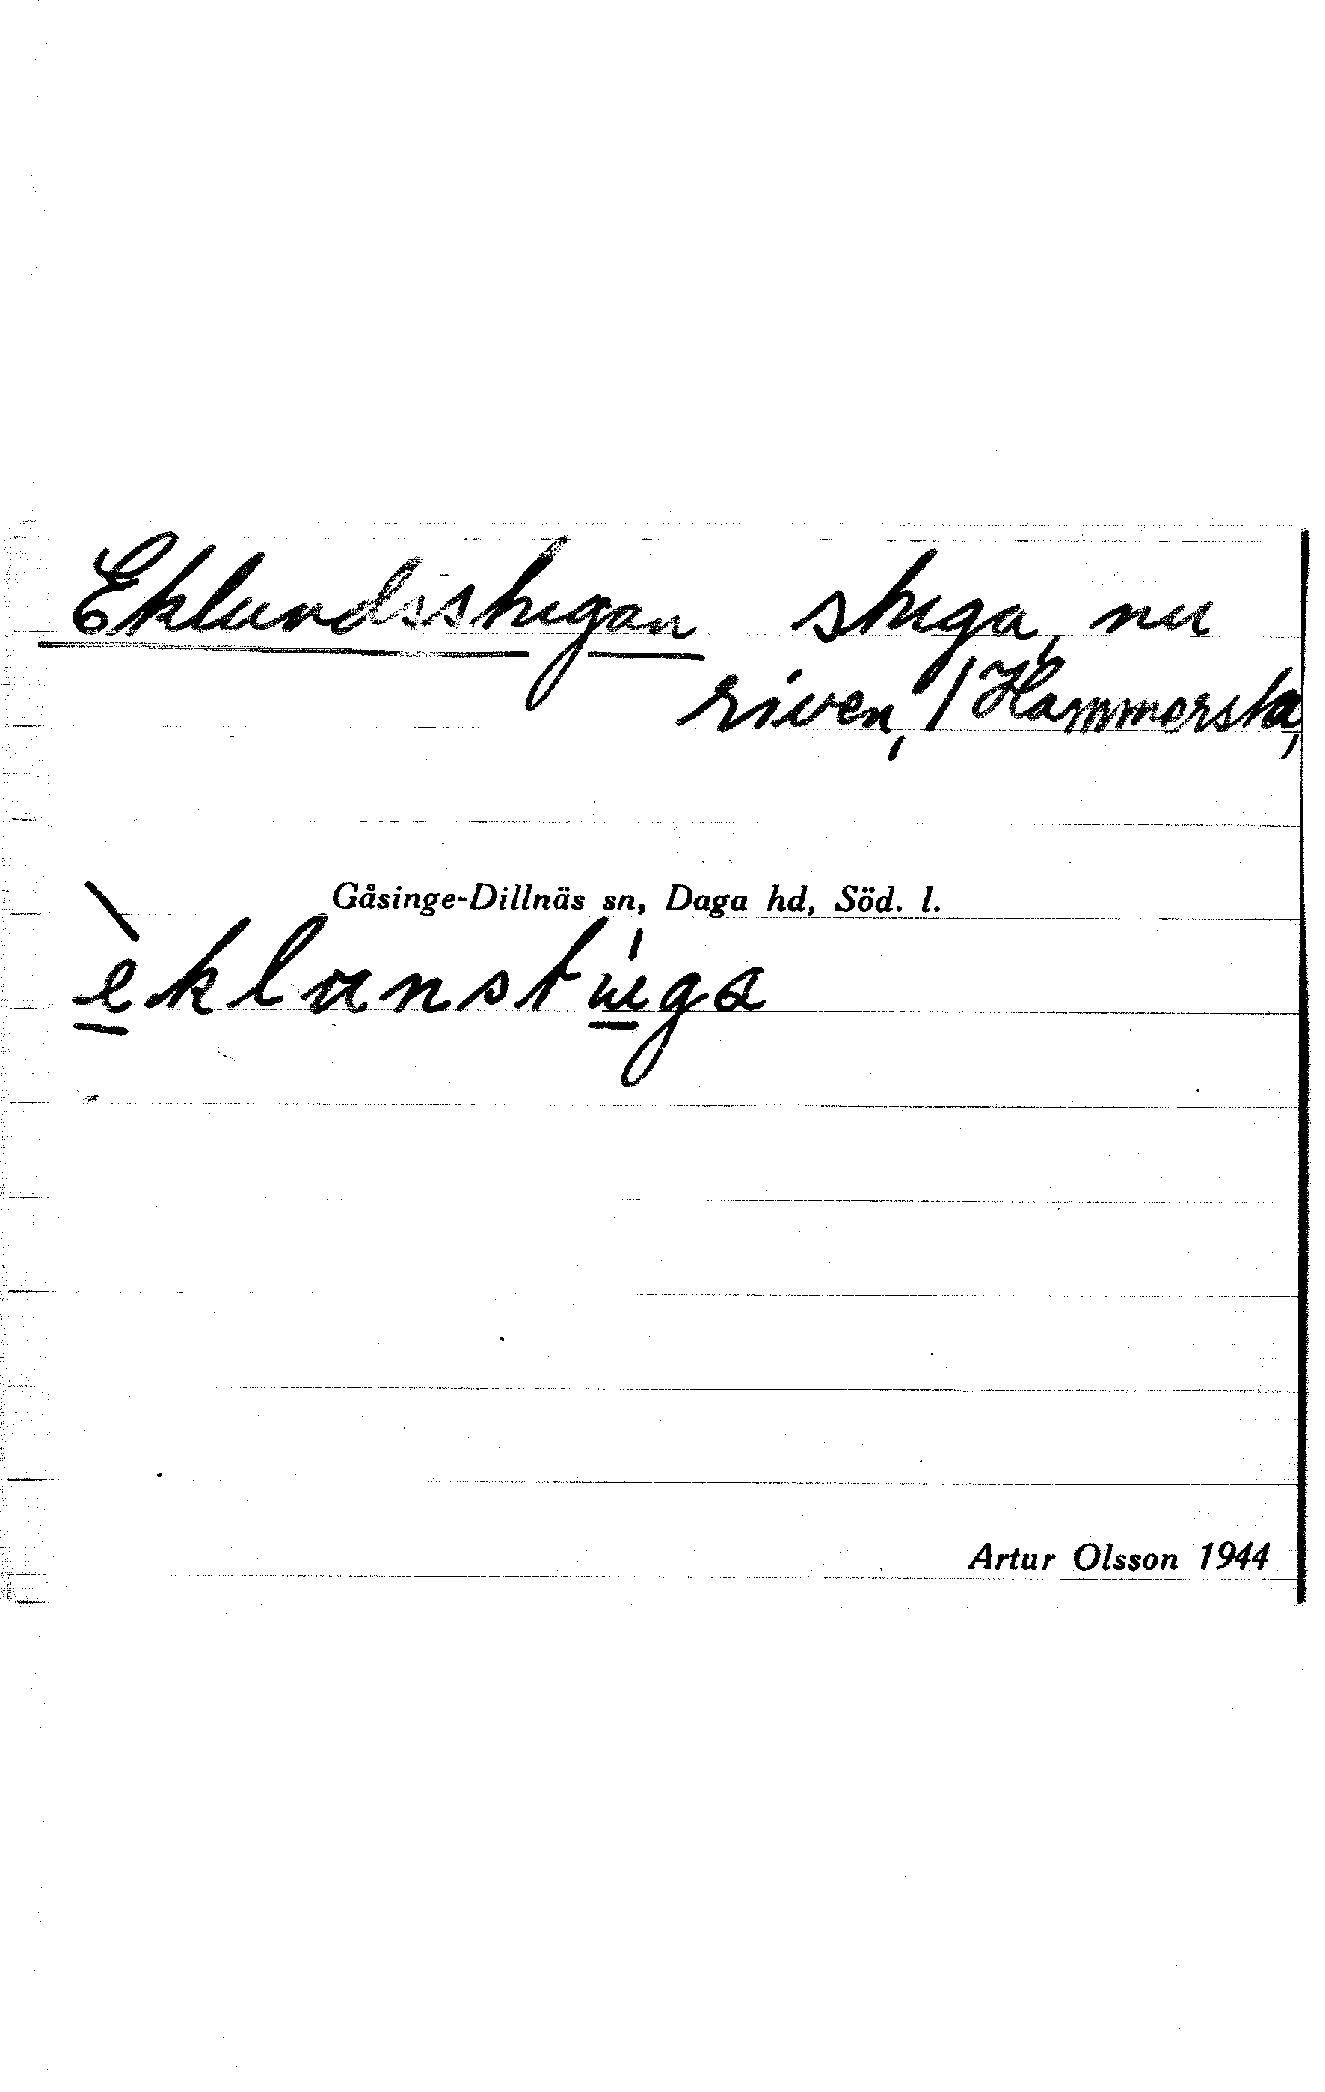 Eklundsstugan stuga, nu
riven, / Hammersta,
Gåsinge-Dillnäs sn, Daga hd, Söd. l.
èklunstuga
Artur Olsson 1944